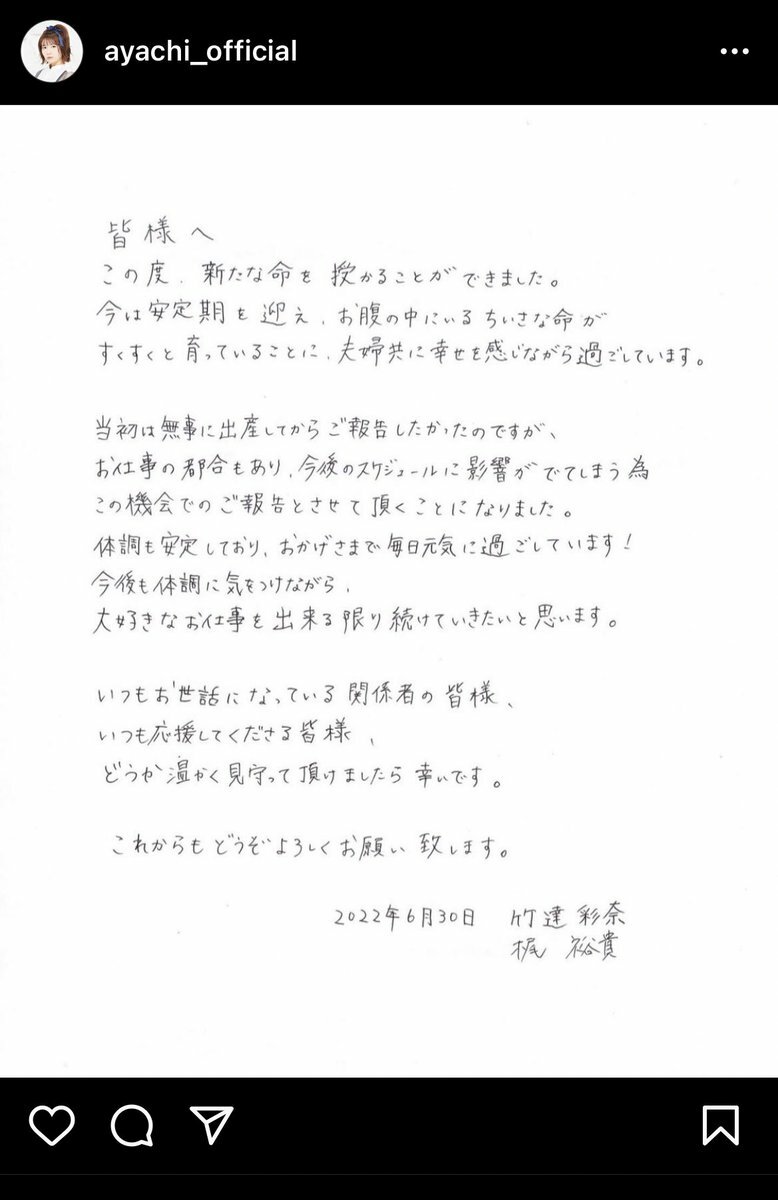 ayachi_official
皆様へ
この度、新たな命を授かることができました。
今は安定期を迎え、お腹の中にいるちいさな命が
すくすくと育っていることに、夫婦共に幸せを感じながら過ごしています。
当初は無事に出産してからご報告したかったのですが、
お仕事の都合もあり、今後のスケジュールに影響がでてしまう為
この機会でのご報告とさせて頂くことになりました。
体調も安定しており、おかげさまで毎日元気に過ごしています!
今後も体調に気をつけながら、
大好きなお仕事を出来る限り続けていきたいと思います。
いつもお世話になっている関係者の皆様、
いつも応援してくださる皆様、
どうか温かく見守って頂けましたら幸いです。
これからもどうぞよろしくお願い致します。
2022年6月30日 竹達 彩奈
梶 裕貴